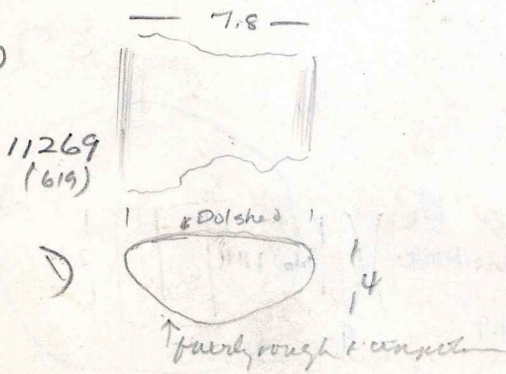 7.8
11269
(619)
Polshed
4
fairly rough +